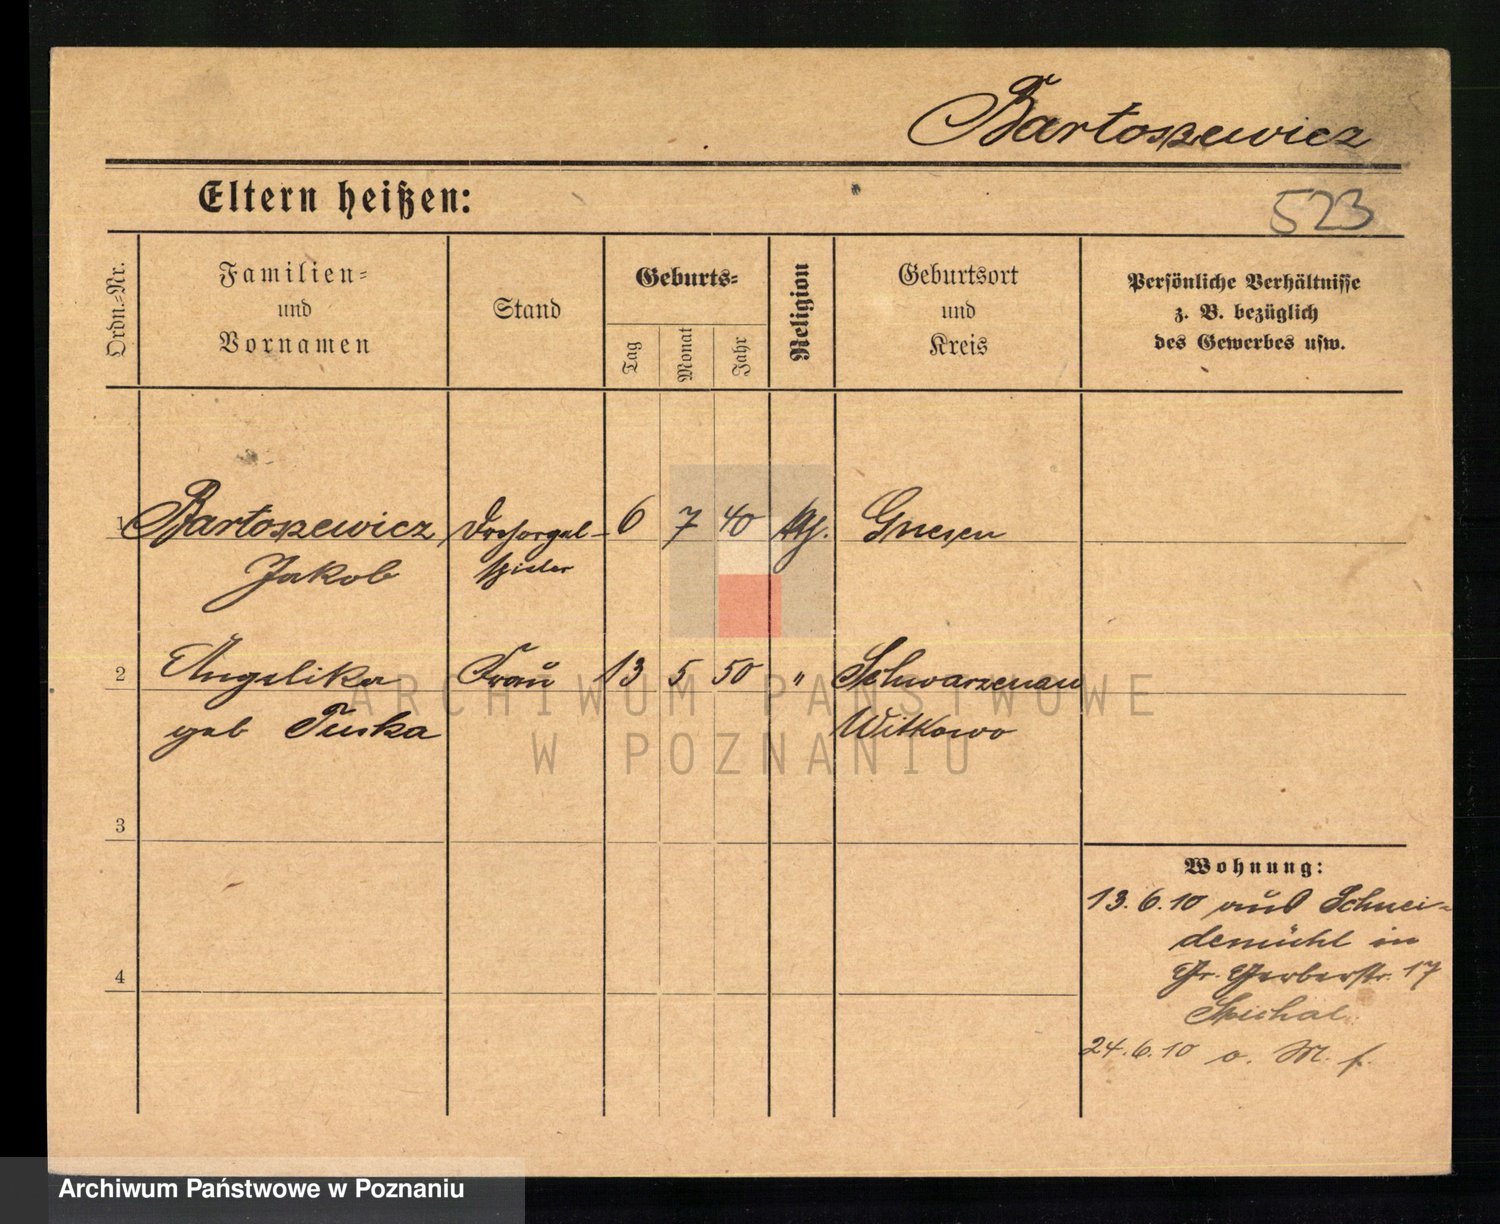 Bartoszewicz
Eltern heißen:
523
Ordn.-Nr.
Familien-
und
Vornamen
Stand
Geburts-
Tag
Monat
Jahr
Religion
Geburtsort
und
Kreis
Persönliche Verhältnisse
z. B. bezüglich
des Gewerbes usw.
1 Bartoszewicz Drehorgel- 6 7 40 kth. Gnesen
Jakob spieler
2 Angelika Frau 13 5 50 " Schwarzenau
geb Tuska Witkowo
3
4
Wohnung:
13.6.10 aus Schnei-
demühl in
Gr. Gerberstr. 17
24.6.10 o. M. f.
ARCHIWUM PAŃSTWOWE
W POZNANIU
Archiwum Państwowe w Poznaniu